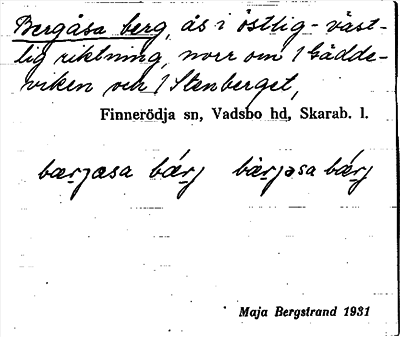 Bergåsa berg, ås i östlig-väst-
lig riktning, norr om 1 Gädde-
viken och 1 Stenberget,
Finnerödja sn, Vadsbo hd, Skarab. l.
bærjasa bárj bàrjəsa bárj
Maja Bergstrand 1931